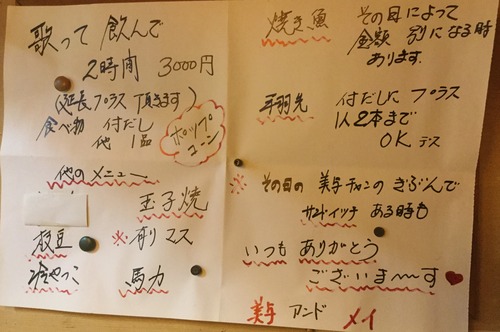 歌って 飲んで
2時間 3000円
(延長プラス 頂きます)
食べ物 付だし
他 1品
ポップ
コーン
他のメニュー
玉子焼
枝豆
※ 削マス
冷やっこ
馬力
焼き魚
その日によって
金額 別になる時
あります.
手羽先
付だしに プラス
1人2本まで
OK デス
※ その日の 美与チャンの きぶんで
サンドイッチ ある時も
いつも ありがとう
ございま〜〜す
美与 アンド メイ